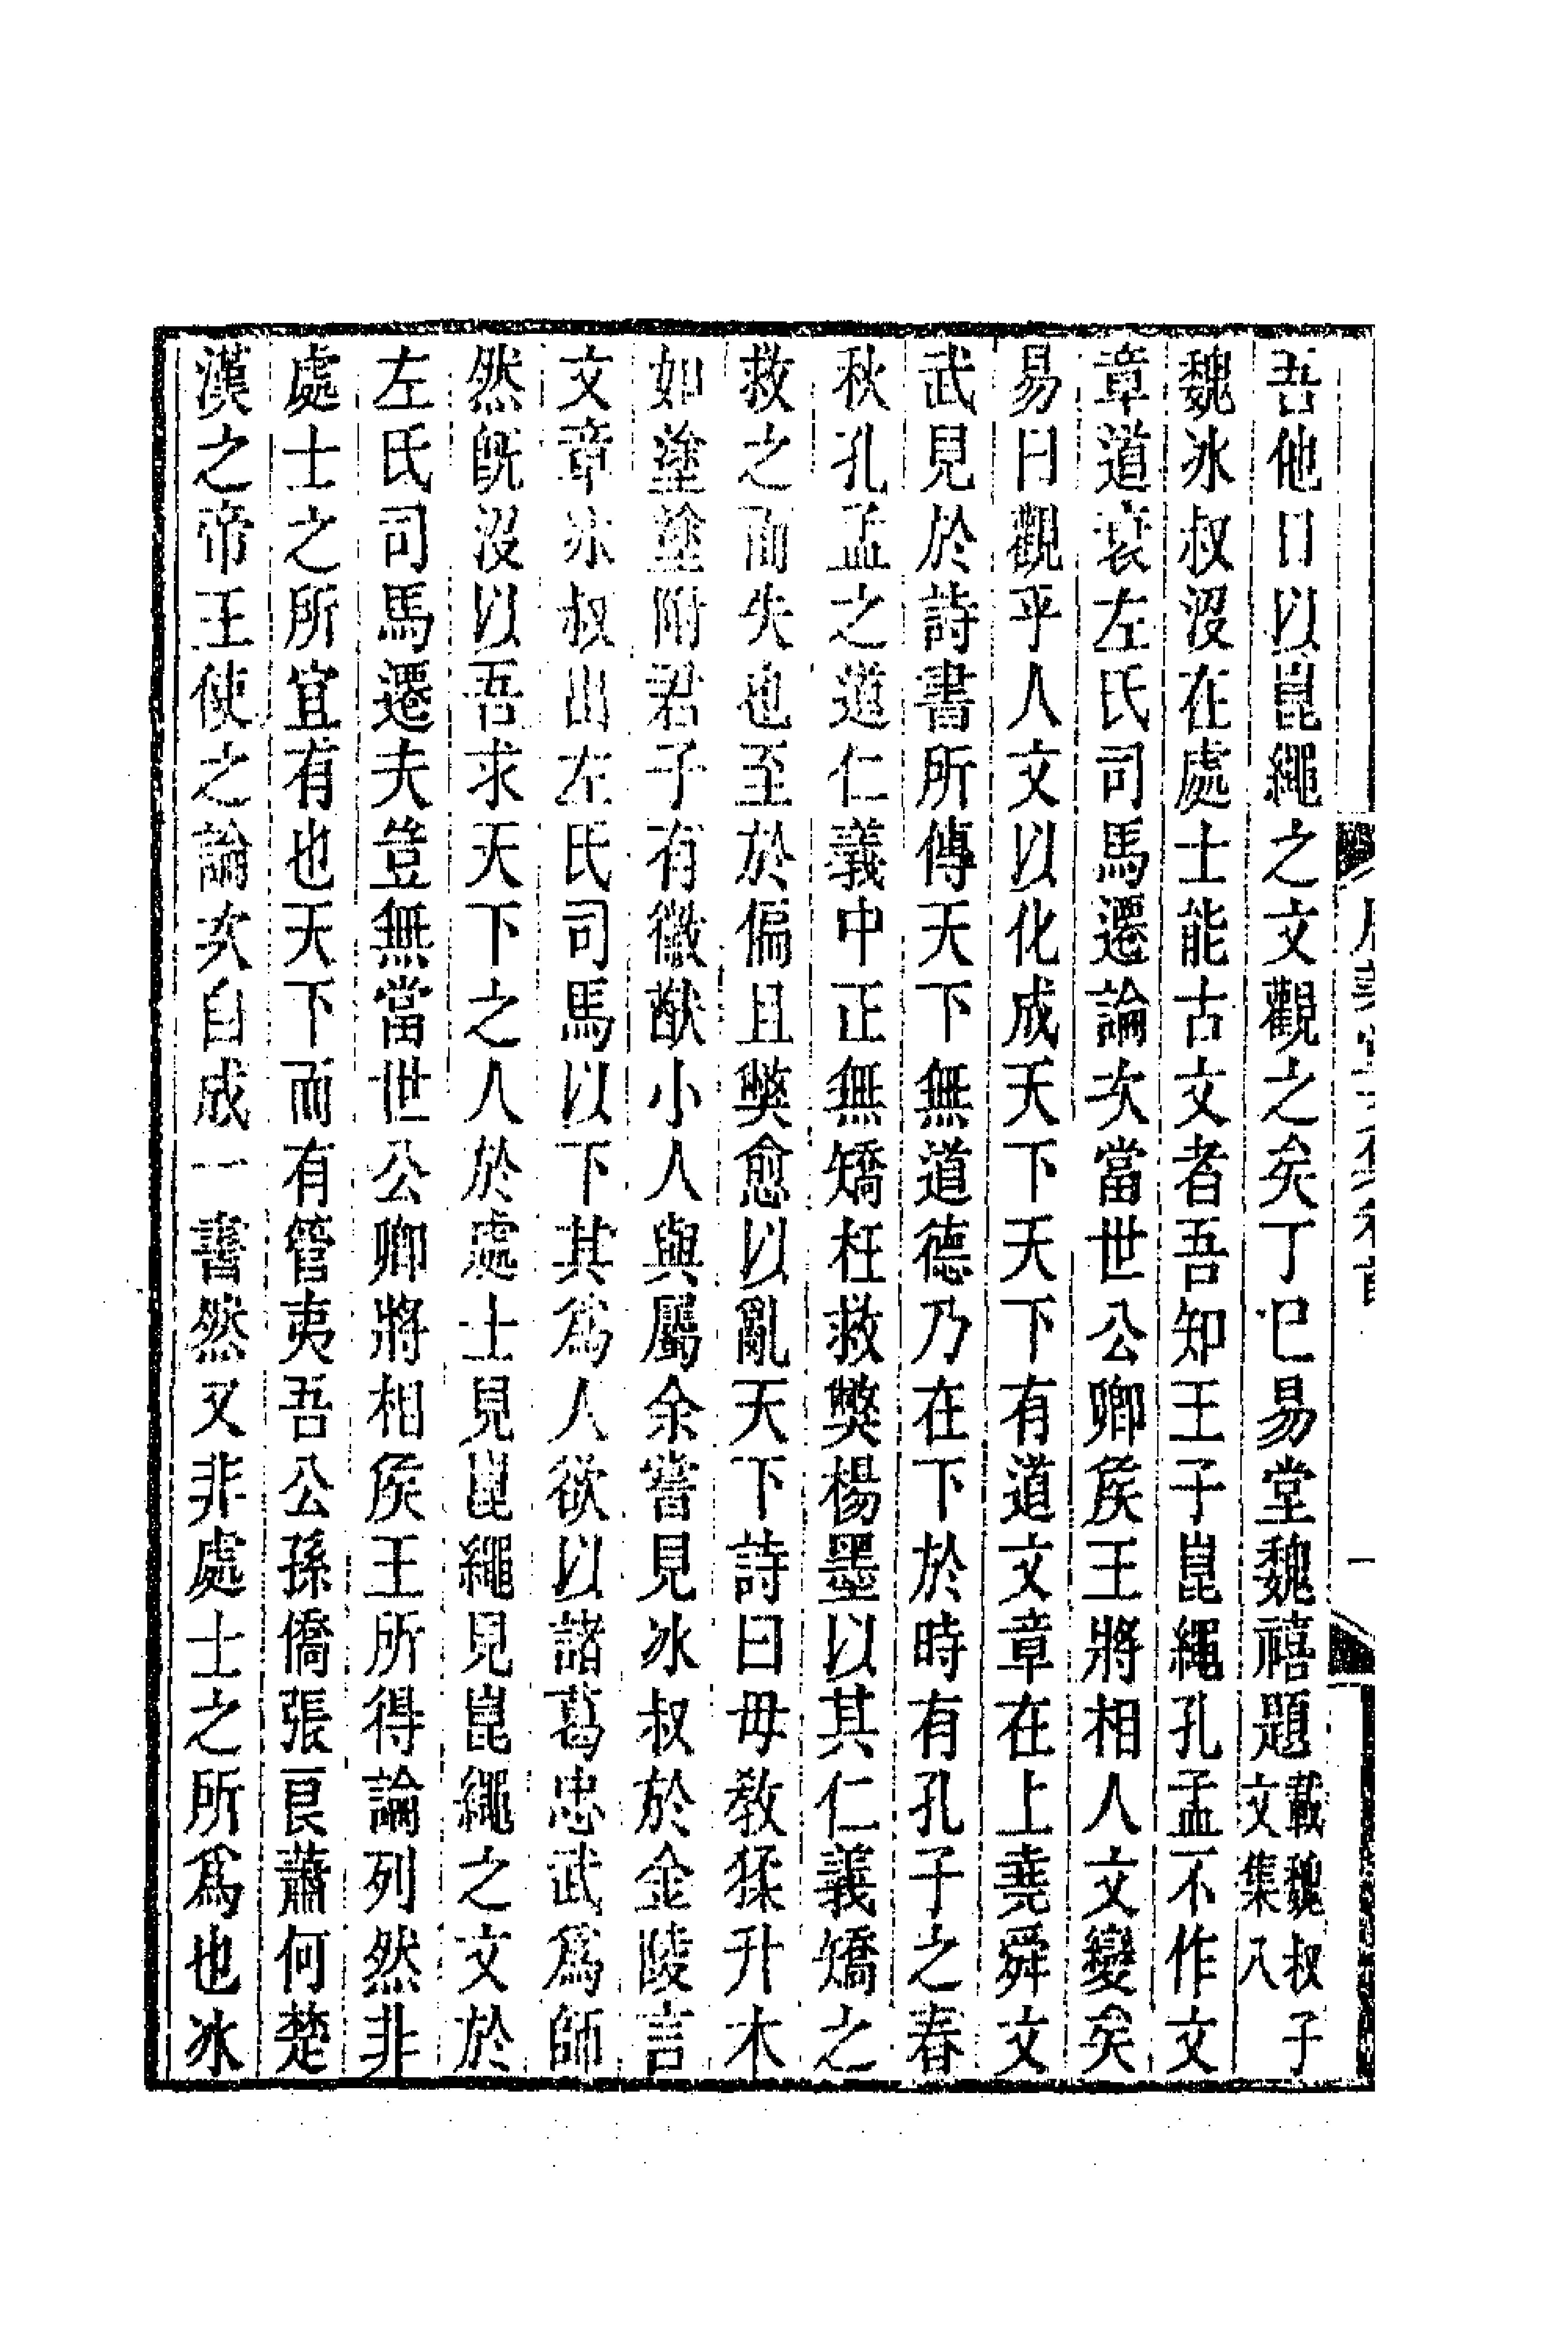 吾他日以崑繩之文觀之矣丁巳易堂魏禧題載魏叔子文集八
魏冰叔沒在處士能古文者吾知王子崑繩孔孟不作文
章道衰左氏司馬遷論次當世公卿矦王將相人文變矣
易曰觀乎人文以化成天下天下有道文章在上堯舜文
武見於詩書所傳天下無道德乃在下於時有孔子之春
秋孔孟之道仁義中正無矯枉救獘楊墨以其仁義矯之
救之而失也至於偏且獘愈以亂天下詩曰毋教猱升木
如塗塗附君子有徽猷小人與屬余嘗見冰叔於金陵言
文章冰叔出左氏司馬以下其爲人欲以諸葛忠武爲師
然旣沒以吾求天下之人於處士見崑繩見崑繩之文於
左氏司馬遷夫豈無當世公卿將相矦王所得論列然非
處士之所宜有也天下而有管夷吾公孫僑張良蕭何楚
漢之帝王使之論次自成一書然又非處士之所爲也冰